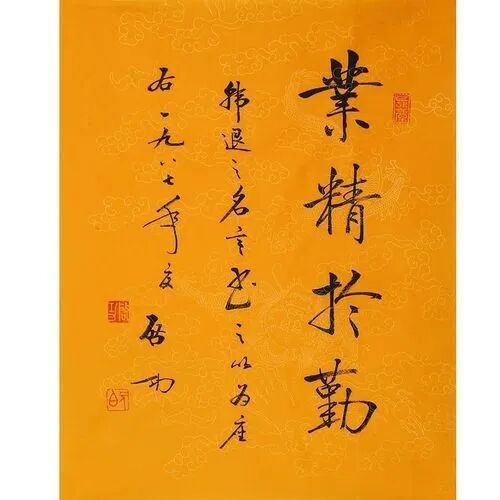 業精於勤
韩退之名言书之以为座
右一九八七年夏
启功